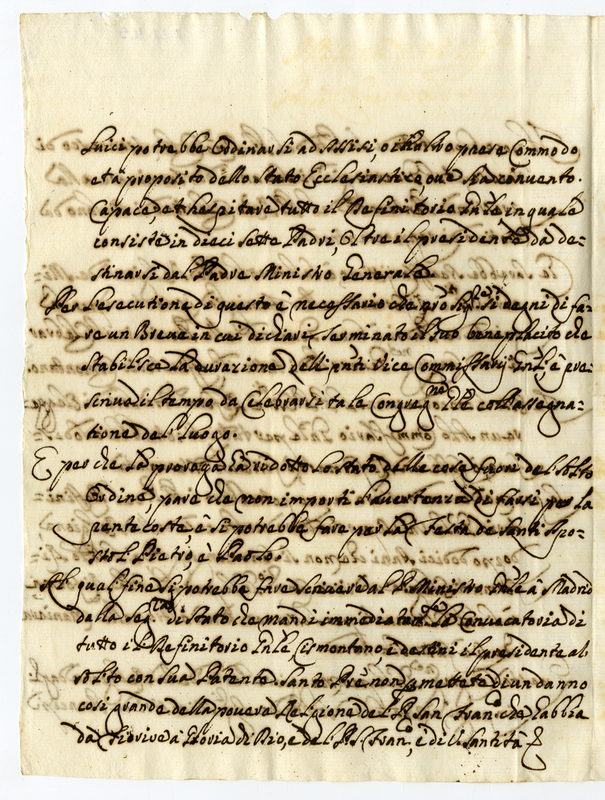 Luici potrebbe Ordinarsi ad Assisi, o in altro paese Commodo
et à proposito dello Stato Ecclesiastico, oue sia conuento.
Capace, et hospitare tutto il Definitorio Gnle in quale
consiste in dieci sette Padri, Oltre il presidente da de-
stinarsi dal Padre Ministro Generale
Per l'esecutione di questo è necessario che nro Sigre si degni di fa-
re un Breue in cui dichiari, terminato il suo beneplacito che
stabilisce la durazione delli pnti Vice Commissarij Gnli, è pre-
scriua il tempo da Celebrarsi tale Congregne Gnle coll'assegna-
tione del luogo.
E perche la proroga hà ridotto lo stato delle cose fuori del solito
Ordine, pare che non importi l'auertenza di farsi per la
pentecoste, è si potrebbe fare per la festa de Santi Apo-
stoli Pietro, è Paolo.
Al qual fine si potrebbe fare scriuere al P. Ministro Gnle à Madrid
dalla Segria di Stato che mandi immediatamte la Conuocatoria di
tutto il Definitorio Gnle, Cismontano, è destini il presidente al
solito con sua Patente. Santo Pre non permettete di un danno
cosi grande della pouera Religione del P. San Franco che habbia
da fiorire à Gloria di Dio, e del P. S. Franco, è di V. Santità